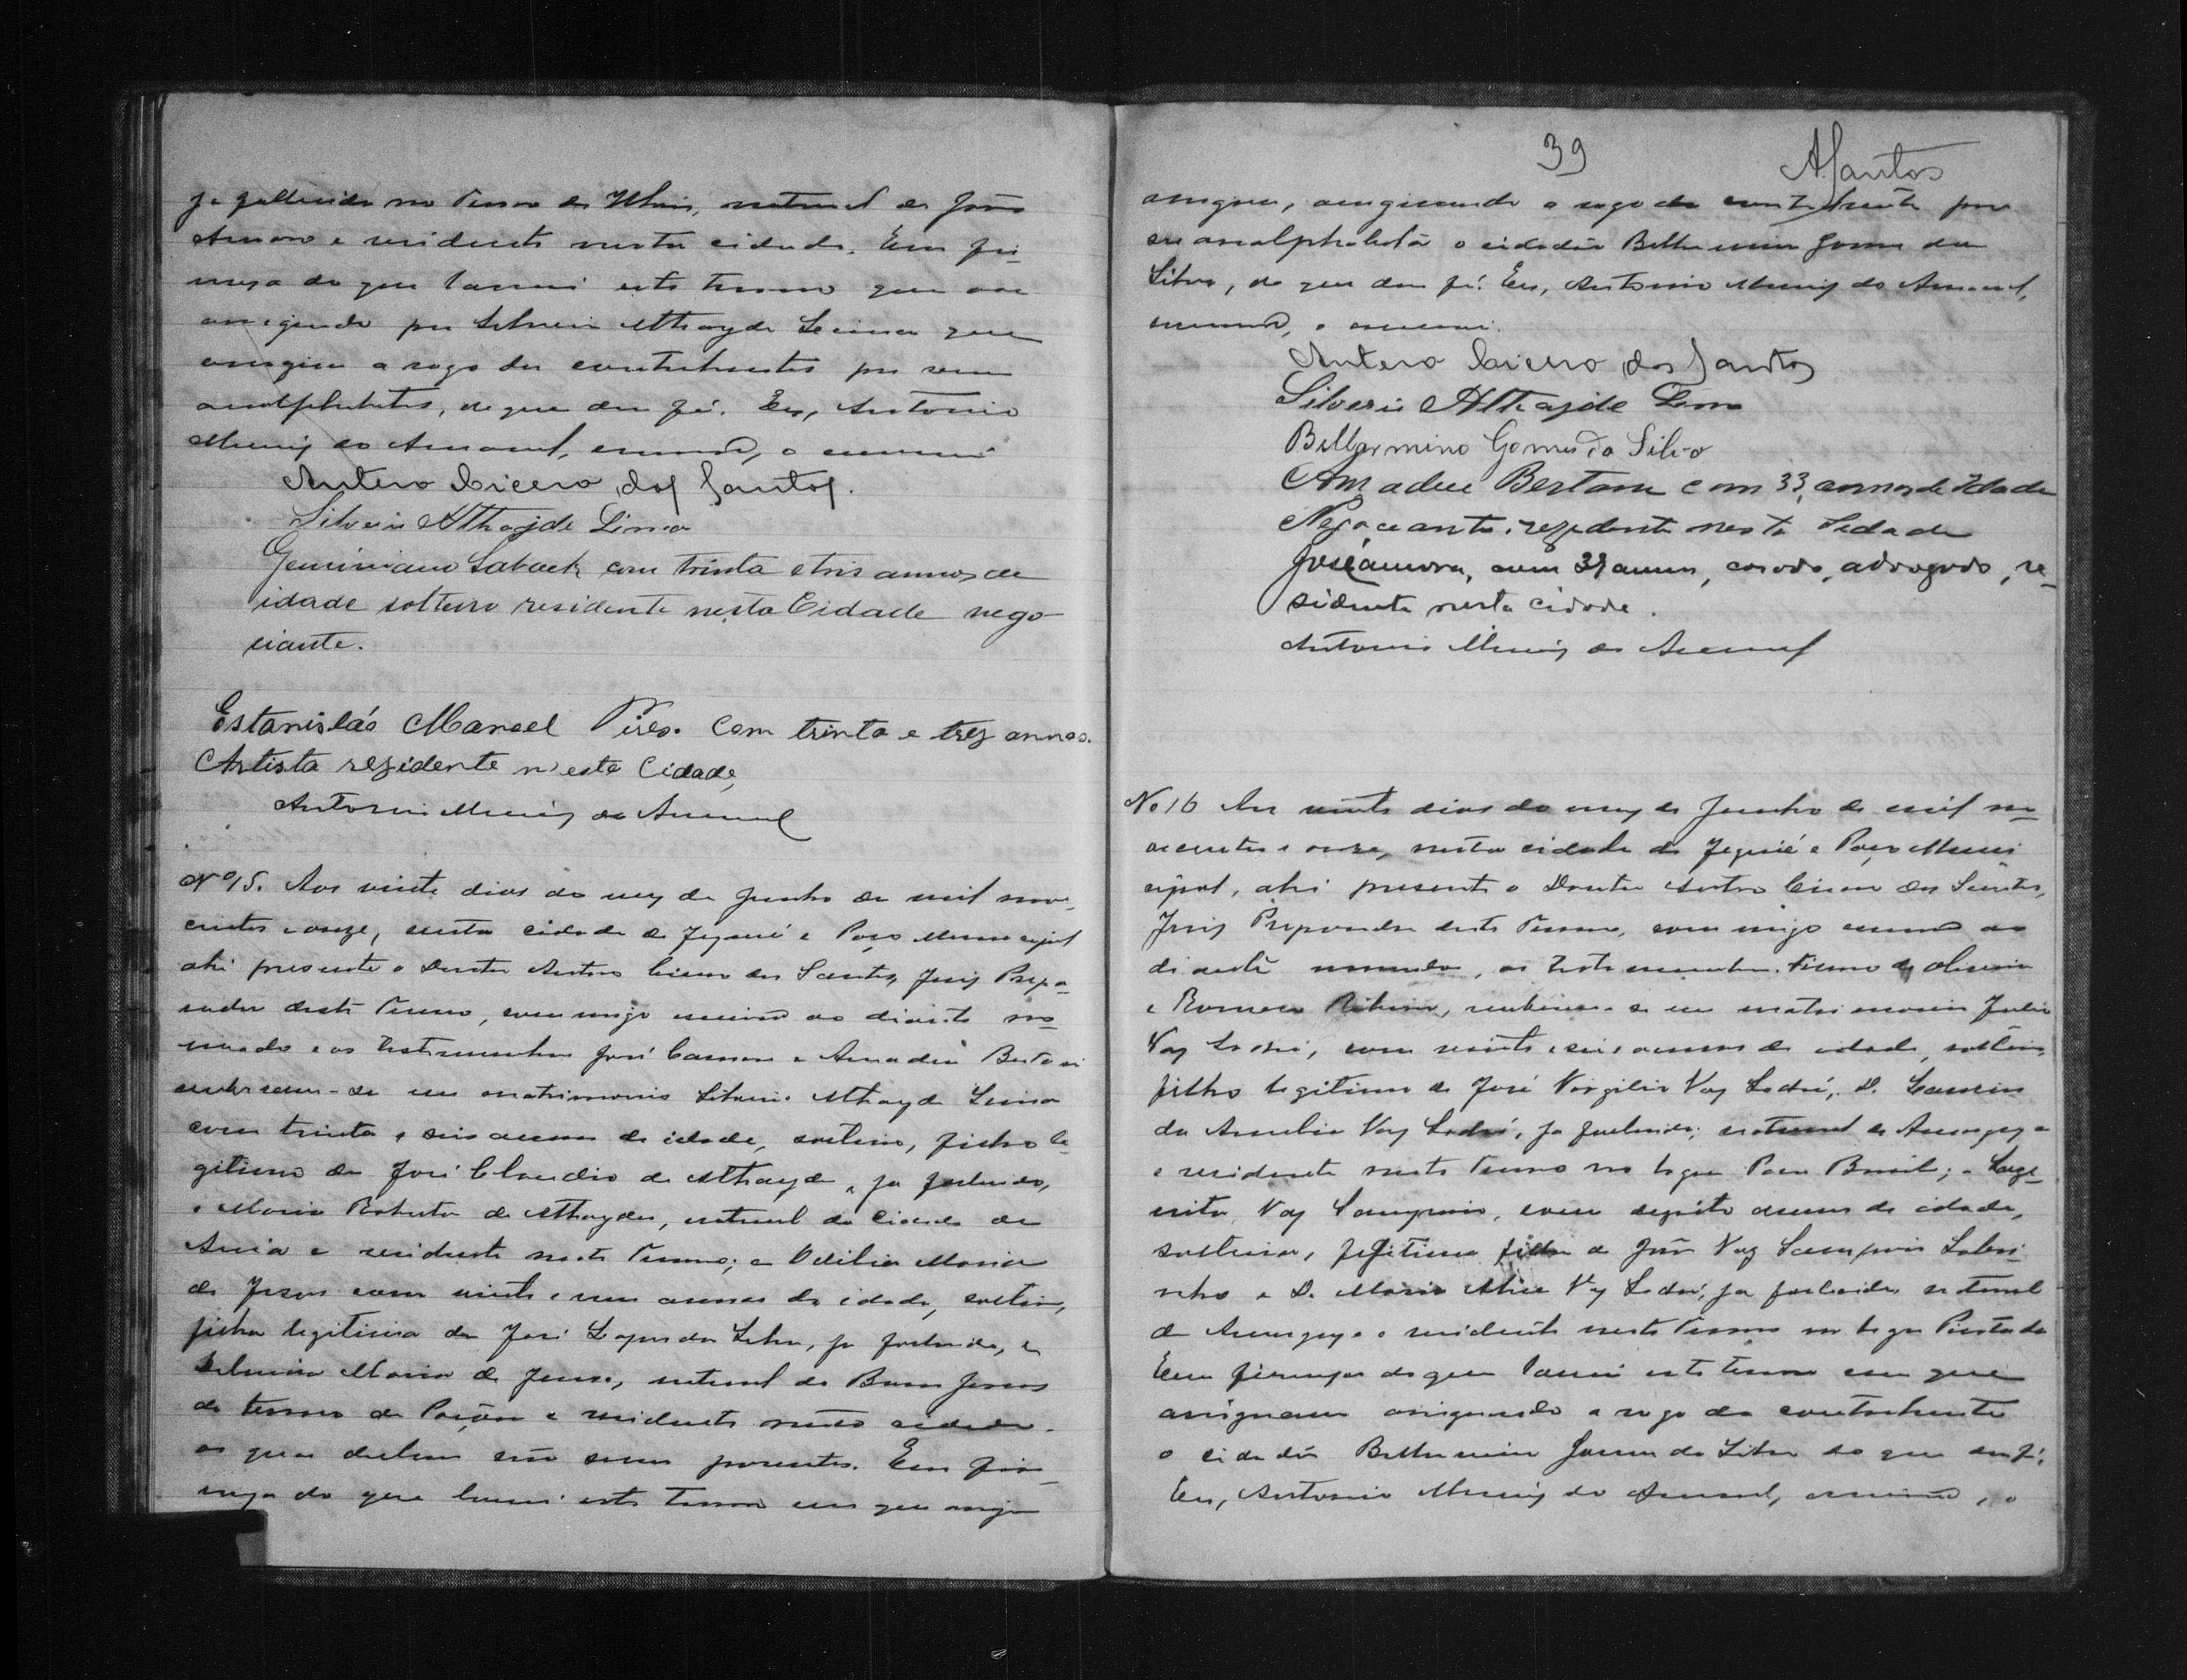 ja fallecida no Termo de Ilheos, natural de
Amaro e residente nesta cidade. Em fir
mesa do que lavrei este termo que vae
assignado por Silverio Athayde Lima que
assigna a rogo dos contrahentes por serem
analphabetos, do que dou fé. Eu, Antonio
Muniz do Amaral, escrivão, o escrevi
Antero Cicero dos Santos.
Silverio Athayde Lima
Geminiano Saback com trinta e tris annos de
idade solteiro residente nesta Cidade nego-
ciante.
Estanisláo Manoel Pires. Com trinta e trez annos.
Artista rezidente n'esta Cidade,
Antonio Muniz do Amaral
Nº 15. Aos vinte dias do mez de Junho de mil nove
centos e onze, nesta cidade de Jequié e Paço Municipal
ahi presente o Doutor Antero Cicero dos Santos, Juiz Prepa-
rador deste Termo, commigo escrivão ao diante no-
meado e as testemunhas José Camera e Amadeu Bertoni
receberam-se em matrimonio Silverio Athayde Lima
com trinta e seis annos de idade, solteiro, filho le-
gitimo de José Claudio de Athayde, ja fallecido,
e Maria Roberta de Athayde, natural da cidade de
Areia e residente neste Termo; e Odilia Maria
de Jesus com vinte e um annos de idade, solteira,
filha legitima de José Lopes da Silva, ja fallecido, e
Maria de Jesus, natural do Bom Jesus
do termo de Poções e residente nesta cidade.
os quaes declaram não serem parentes. Em fir-
meza do que lavrei este termo em que assig
39 ASantos
assignam, assignando a rogo da contrahente por
ser analphabeta o cidadão Bellarmino Gomes da
Silva, do que dou fé. Eu, Antonio Muniz do Amaral,
escrivão, o escrevi.
Antero Cicero dos Santos
Silverio Athayde Lima
Bellarmino Gomes da Silva
Amadeu Bertoni com 33 annos de Idade
Negociante rezidente nesta Sidade
José Camera, com 37 annos, casado, advogado, re-
sidente nesta cidade.
Antonio Muniz do Amaral
No 16 Aos vinte dias do mez de Junho de mil no-
vecentos e onze, nesta cidade de Jequié e Paço Muni
cipal, ahi presente o Doutor Antero Cicero dos Santos,
Juiz Preparador deste Termo, commigo escrivão ao
diante nomeado, as testemunhas
e Romeu Ribeiro, receberam-se em matrimonio Julio
Vaz Sodré, com vinte e seis annos de idade, solteiro,
filho legitimo de José Virgilio Vaz Sodré, D.
da Amelia Vaz Sodré, ja fallecida, natural de Amargoza
e residente neste Termo no logar Páo Brasil; e
Vaz Sampaio, com dezoito annos de idade,
solteira, legitima filha de João Vaz Sampaio
e D. Maria Alice Vaz Sodré, ja fallecida, natural
de Amargoza e residente neste Termo no logar
Em firmeza do que lavrei este termo em que
assignam assignando a rogo da contrahente
o cidadão Bellarmino Gomes da Silva do que dou fé,
Eu, Antonio Muniz do Amaral, escrivão, o